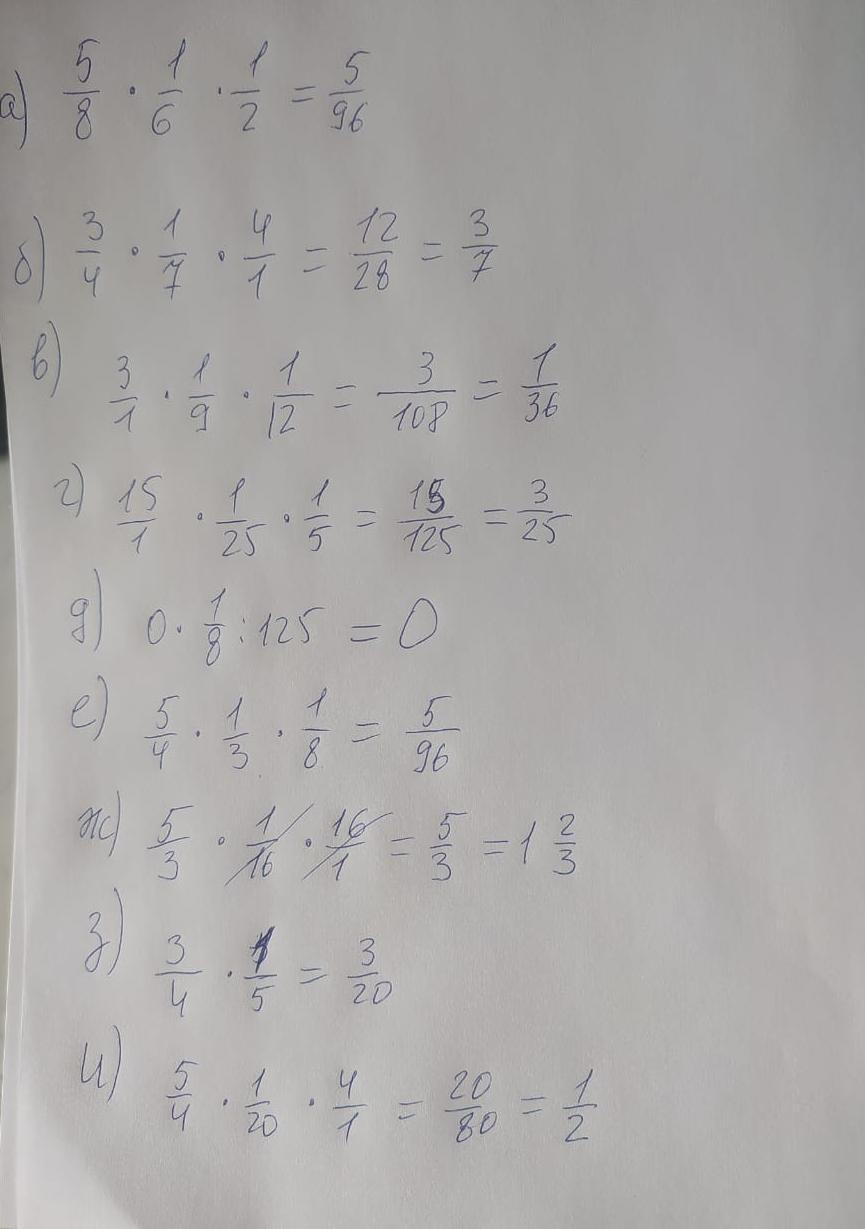 а) 5/8 · 1/6 · 1/2 = 5/96
б) 3/4 · 1/7 · 4/1 = 12/28 = 3/7
в) 3/1 · 1/9 · 1/12 = 3/108 = 1/36
г) 15/1 · 1/25 · 1/5 = 15/125 = 3/25
д) 0 · 1/8 : 125 = 0
е) 5/4 · 1/3 · 1/8 = 5/96
ж) 5/3 · 1/16 · 16/1 = 5/3 = 1 2/3
з) 3/4 · 1/5 = 3/20
и) 5/4 · 1/20 · 4/1 = 20/80 = 1/2